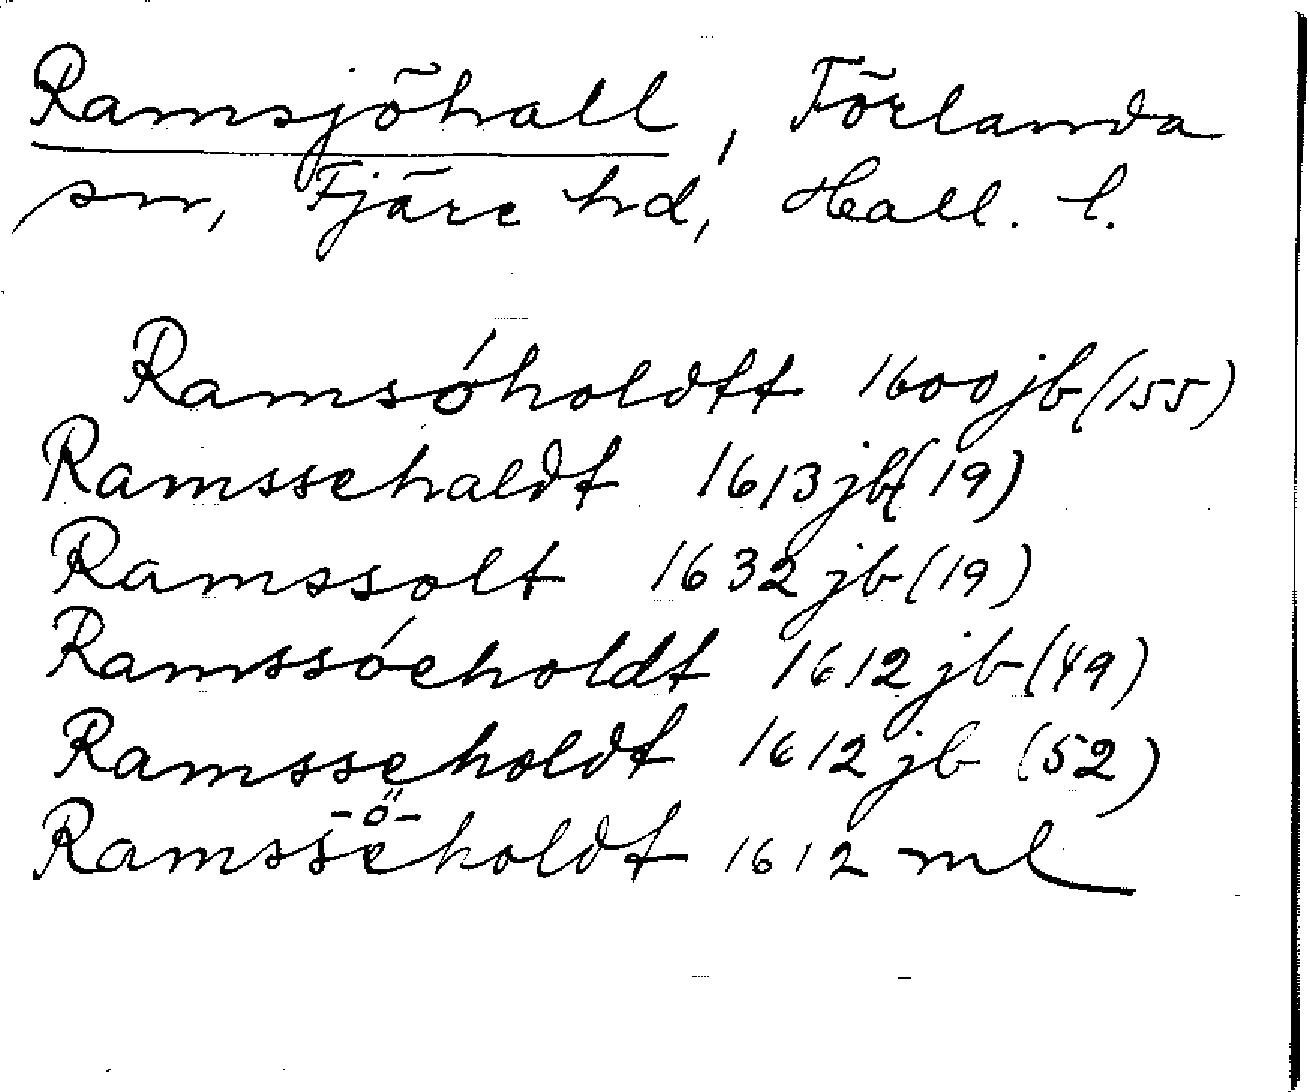 Ramsjöhall, Förlanda
sn, Fjäre hd, Hall. l.
Ramsóholdtt 1600 jb (155)
Ramssehaldt 1613 jb (19)
Ramssolt 1632 jb (19)
Ramssóeholdt 1612 jb (49)
Ramsseholdt 1612 jb (52)
-ö-
Ramssëholdt 1612 ml